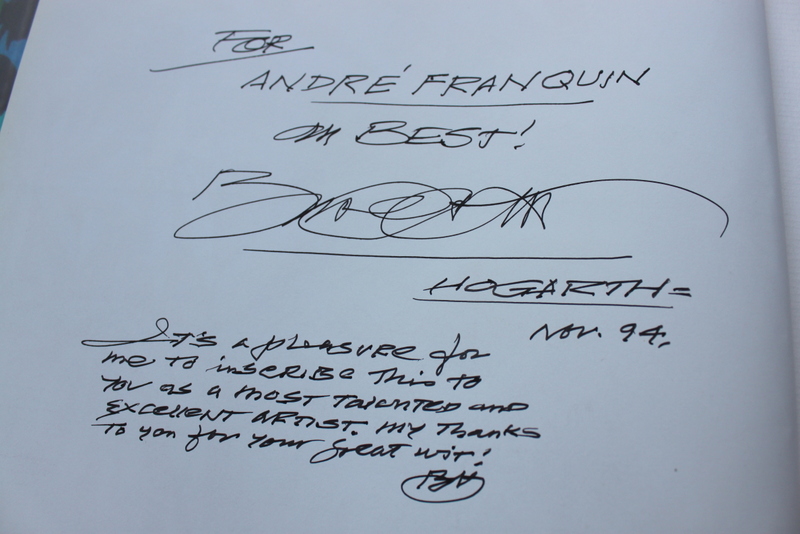 FOR
ANDRÉ FRANQUIN
BEST!
HOGARTH =
NOV. 94.
It's a pleasure for
me to inscribe this to
you as a most talented and
excellent artist. My thanks
to you for your great wit!
BH